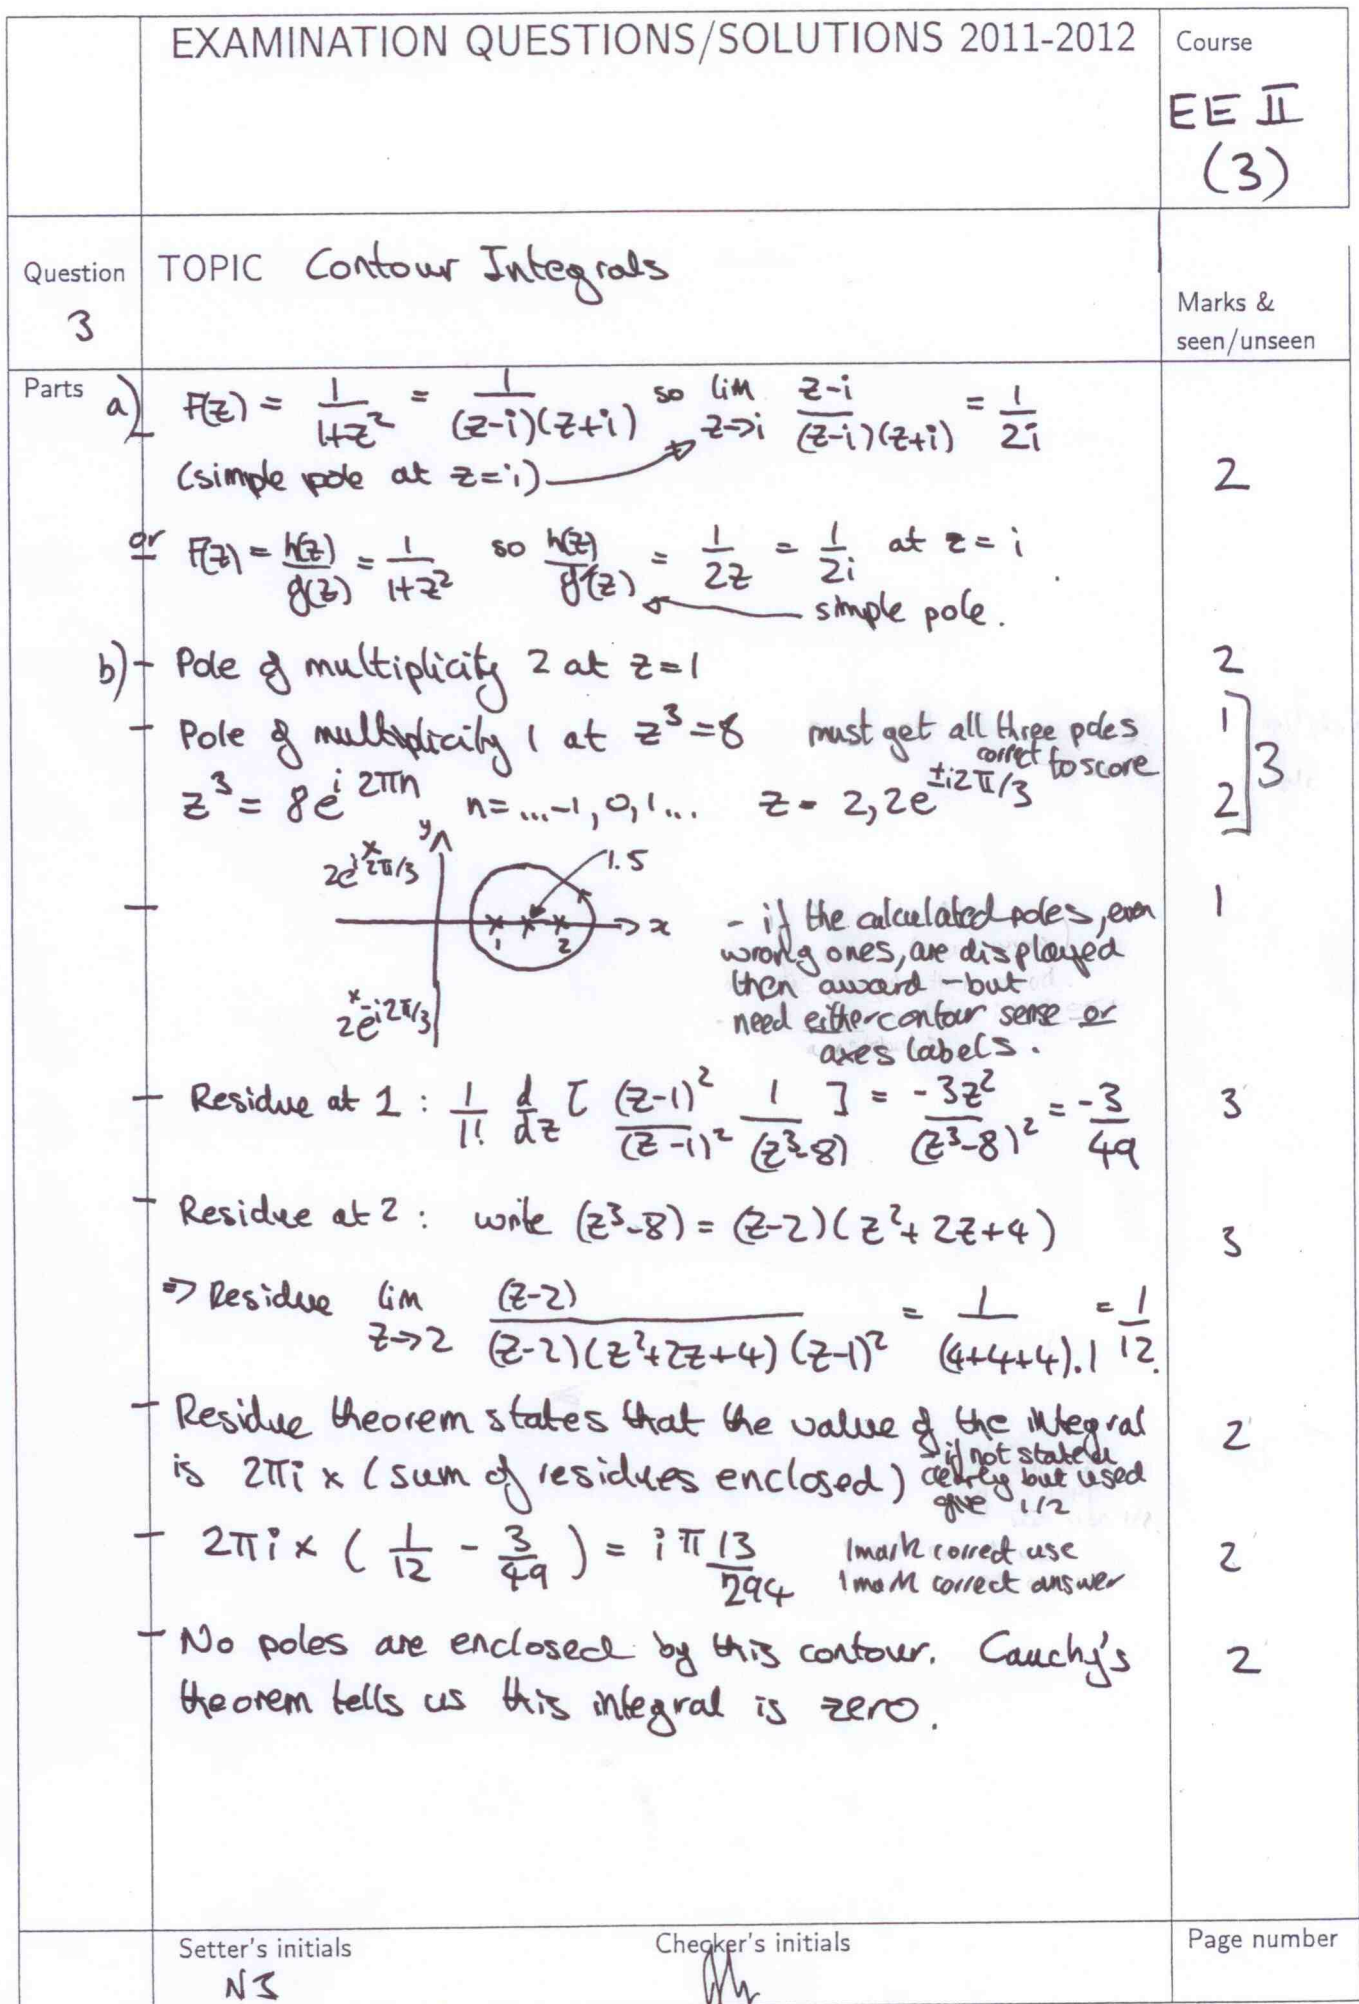 EXAMINATION QUESTIONS/SOLUTIONS 2011-2012
Course
EE II
(3)
Question
3
TOPIC Contour Integrals
Marks &
seen/unseen
Parts
a) F(z) = 1/(1+z²) = 1/((z-i)(z+i)) so lim z->i (z-i)/((z-i)(z+i)) = 1/2i
(simple pole at z=i) 2
or F(z) = h(z)/g(z) = 1/(1+z²) so h(z)/g'(z) = 1/2z = 1/2i at z = i
simple pole.
b) - Pole of multiplicity 2 at z=1 2
- Pole of multiplicity 1 at z³=8 must get all three poles 1
correct to score 3
z³ = 8e^(i2πn) n=...-1,0,1... z = 2, 2e^(±i2π/3) 2
y
x
2e^(i2π/3)
1.5
- x 1 x x 2 x
- if the calculated poles, even 1
wrong ones, are displayed
then award - but
x
2e^(-i2π/3)
need either contour sense or
axes labels.
- Residue at 1 : 1/1! d/dz [ (z-1)²/(z-1)² 1/(z³-8) ] = -3z²/(z³-8)² = -3/49 3
- Residue at 2 : write (z³-8) = (z-2)(z²+2z+4) 3
=> Residue lim z->2 (z-2)/((z-2)(z²+2z+4)(z-1)²) = 1/((4+4+4).1) = 1/12.
- Residue theorem states that the value of the integral 2
is 2πi x (sum of residues enclosed)
- if not stated
clearly but used
give 1/2
- 2πi x ( 1/12 - 3/49 ) = iπ 13/294 1 mark correct use 2
1 mark correct answer
- No poles are enclosed by this contour. Cauchy's 2
theorem tells us this integral is zero.
Setter's initials
Checker's initials
Page number